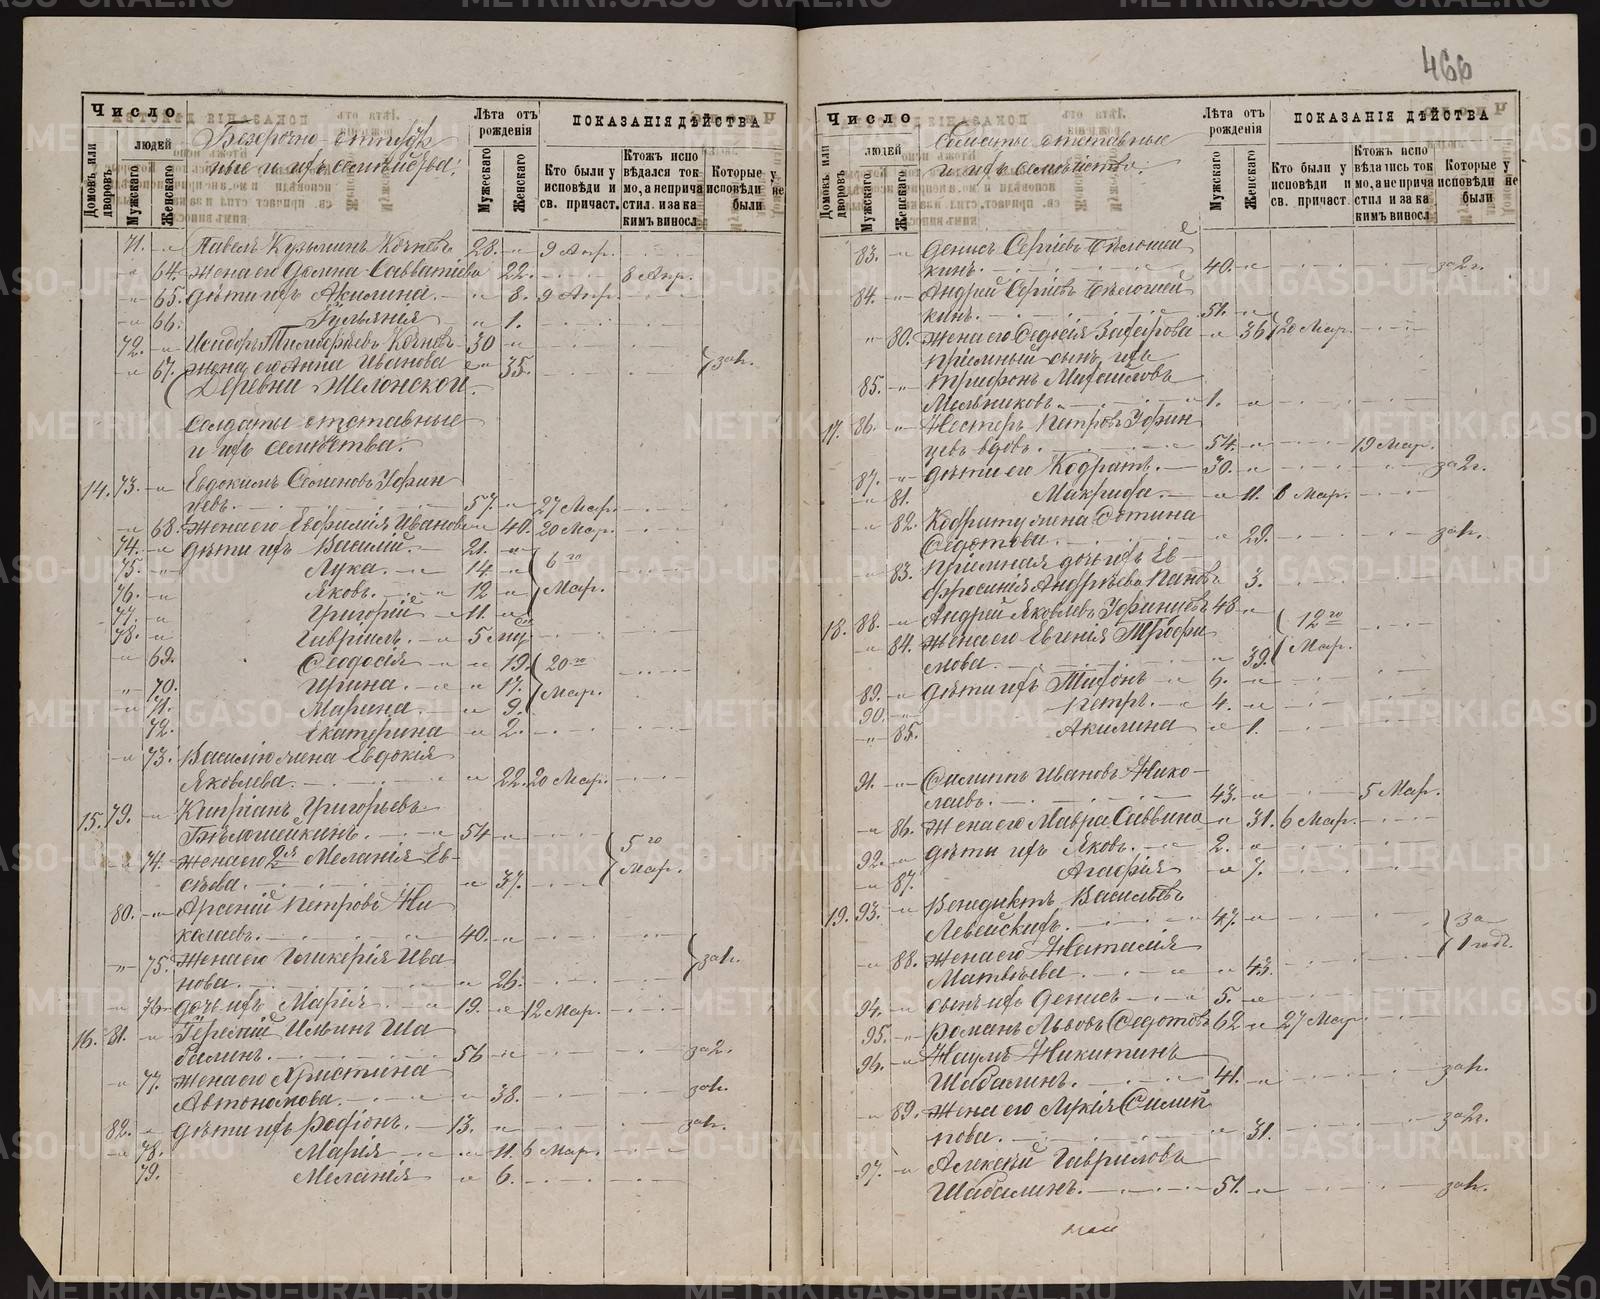 466
Число
людей
Домовъ или дворовъ
Мужскаго
Женскаго
Безсрочно-отпуск
ные и ихъ семейства:
Лѣта отъ рожденія
Мужескаго
Женскаго
ПОКАЗАНІЯ ДѢЙСТВА
Кто были у исповѣди и св. причаст.
Ктожъ испо вѣдался ток мо, а не прича стил и за ка кимъ винос.
Которые у исповѣди не были
71. Павелъ Кузьминъ 28. 9 Апр.
64. жена его Савватіева 22. 8 Апр.
65. дѣти ихъ Акилина. 8. 9 Апр.
66. Іуліянія 1.
72. Исидоръ Тимофеевъ 30
67. жена его Анна Иванова 35. за1.
Деревни Мелонской
солдаты отставные
и ихъ семейства:
14. 73. Евдокимъ Семеновъ Уфин
цевъ. 57. 27 Мар.
68. жена его Евфимія Иванова 40. 20 Мар.
74. дѣти ихъ Василій. 21.
75. Лука. 14. 6го
76. Яковъ. 12 Мар.
77. Григорій 11.
78. Гавріилъ. 5
69. Ѳеодосія 19. 20го
70. Ирина. 17. Мар.
71. Марина. 9.
72. Екатерина 2.
73. Василію жена Евдокія
Яковлева. 22. 20 Мар.
15. 79. Кипріанъ Григорьевъ
Бѣлошейкинъ. 54 5го
74. жена его 2я Меланія Ев-
сѣева. 37. Мар.
80. Арсеній Петровъ Ни
колаевъ. 40.
75. жена его Гликерія Ива
нова. 26. за1.
76. дочь ихъ Марія 19. 12 Мар.
16. 81. Терентій Ильинъ Ша
балинъ. 56 за2.
77. жена его Христина
Автономова. 38. за1.
82. дѣти ихъ Родіонъ. 13. за1.
78. Марія 11. 6 Мар.
79. Меланія 6.
Число
людей
Домовъ или дворовъ
Мужскаго
Женскаго
Солдаты отставные
и ихъ семейство:
Лѣта отъ рожденія
Мужскаго
Женскаго
ПОКАЗАНІЯ ДѢЙСТВА
Кто были у исповѣди и св. причаст.
Ктожъ испо вѣдались ток мо, а не прича стил и за ка кимъ винос.
Которые у исповѣди не были
83. Денисъ Сергіевъ Бѣлошей
кинъ. 40. за2г.
84. Андрей Сергіевъ Бѣлошей
кинъ. 51.
80. жена его Ѳедосія Захарова 36 20 Мар.
пріемный сынъ ихъ
85. Трифонъ Михайловъ
Мельниковъ. 1.
17. 86. Нестеръ Петровъ Уфин
цевъ вдовъ. 54. 19 Мар.
87. дѣти его Кодратъ. 30. за2г.
81. Макрида. 11. 6 Мар.
82. Кодрату жена Ѳотина
Ѳедотова. 29. за1.
83. Пріемная дочь ихъ Ев-
фросинія Андрѣева 3.
18. 88. Андрей Яковлевъ Уфинцевъ 48 12го
84. жена его Евгенія Трофи
мова. 39. Мар.
89. дѣти ихъ 6.
90. Петръ. 4.
85. Акилина 1.
91. Филиппъ Ивановъ Нико-
лаевъ. 43. 5 Мар.
86. жена его Мавра Саввина 31. 6 Мар.
92. дѣти ихъ Яковъ. 2.
87. Агафія 7.
19. 93. Венедиктъ Васильевъ
Левейскихъ. 47. за
88. жена его Наталія 1 годъ.
Матвѣева 43.
94. сынъ ихъ Денисъ 5.
95. Романъ Львовъ Ѳедотовъ 62 27 Мар.
96. Наумъ Никитинъ
Шабалинъ. 41. за1.
89. жена его Лукія Филип
пова. 31. за2г.
97. Алексѣй Гавриловъ
Шабалинъ. 51. за1.
METRIKI.GASO-URAL.RU